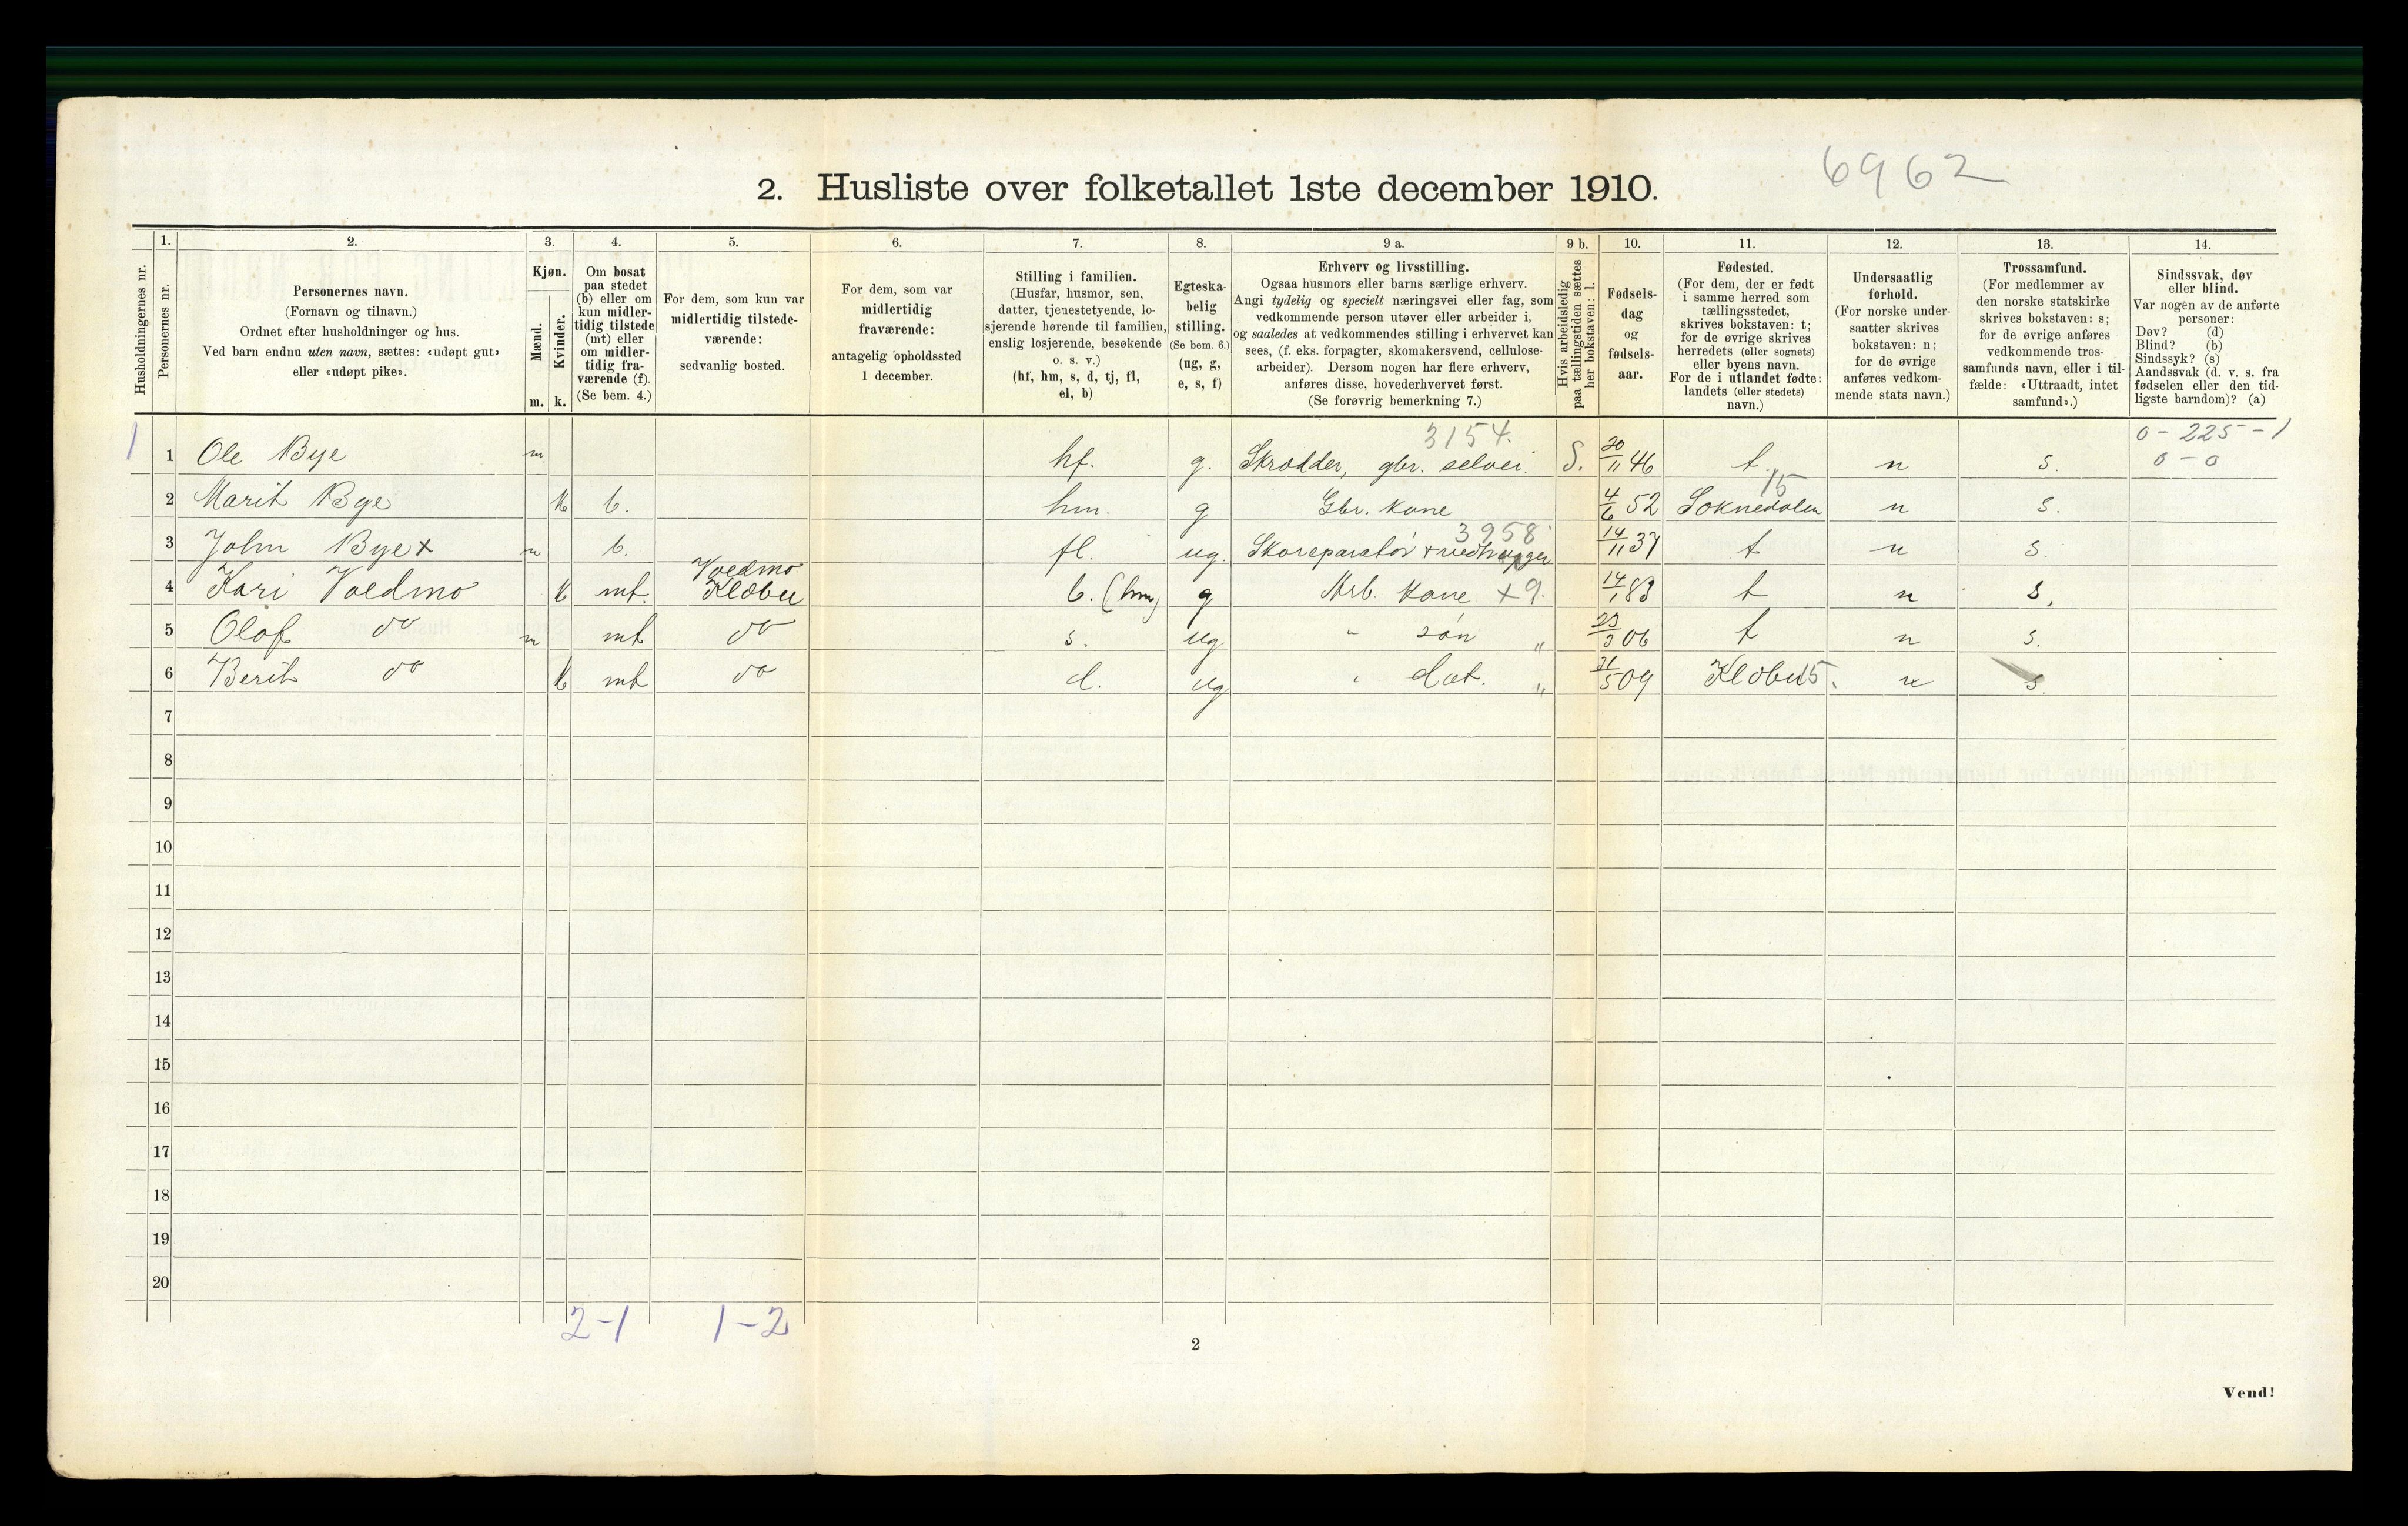 6962
2. Husliste over folketallet 1ste december 1910.
1. 2. 3. 4. 5. 6. 7. 8. 9 a. 9 b. 10. 11. 12. 13. 14.
Husholdningernes nr.
Personernes nr.
Personernes navn.
(Fornavn og tilnavn.)
Ordnet efter husholdninger og hus.
Ved barn endnu uten navn, sættes: «udøpt gut»
eller «udøpt pike».
Kjøn.
Mænd.
Kvinder.
m. k.
Om bosat
paa stedet
(b) eller om
kun midler-
tidig tilstede
(mt) eller
om midler-
tidig fra-
værende (f).
(Se bem. 4.)
For dem, som kun var
midlertidig tilstede-
værende:
sedvanlig bosted.
For dem, som var
midlertidig
fraværende:
antagelig opholdssted
1 december.
Stilling i familien.
(Husfar, husmor, søn,
datter, tjenestetyende, lo-
sjerende hørende til familien,
enslig losjerende, besøkende
o. s. v.)
(hf, hm, s, d, tj, fl,
el, b)
Egteska-
belig
stilling.
(Se bem. 6.)
(ug, g,
e, s, f)
Erhverv og livsstilling.
Ogsaa husmors eller barns særlige erhverv.
Angi tydelig og specielt næringsvei eller fag, som
vedkommende person utøver eller arbeider i,
og saaledes at vedkommendes stilling i erhvervet kan
sees, (f. eks. forpagter, skomakersvend, cellulose-
arbeider). Dersom nogen har flere erhverv,
anføres disse, hovederhvervet først.
(Se forøvrig bemerkning 7.)
Hvis arbeidsledig
paa tællingstiden sættes
her bokstaven: l.
Fødsels-
dag
og
fødsels-
aar.
Fødested.
(For dem, der er født
i samme herred som
tællingsstedet,
skrives bokstaven: t;
for de øvrige skrives
herredets (eller sognets)
eller byens navn.
For de i utlandet fødte:
landets (eller stedets)
navn.)
Undersaatlig
forhold.
(For norske under-
saatter skrives
bokstaven: n;
for de øvrige
anføres vedkom-
mende stats navn.)
Trossamfund.
(For medlemmer av
den norske statskirke
skrives bokstaven: s;
for de øvrige anføres
vedkommende tros-
samfunds navn, eller i til-
fælde: «Uttraadt, intet
samfund».)
Sindssvak, døv
eller blind.
Var nogen av de anførte
personer:
Døv? (d)
Blind? (b)
Sindssyk? (s)
Aandssvak (d. v. s. fra
fødselen eller den tid-
ligste barndom)? (a)
3154. 0 - 225 - 1
1 1 Ole Bye m hf. g. Skrædder, gbr. selvei. S. 20/11 46 t. n s. 0 - 0
15
2 Marit Bye k b. hm. g Gbr. kone 4/6 52 Soknedalen n s.
3958
3 John Bye x m b. fl. ug. Skoreparatør + vedhugger 14/11 37 t n s.
Voedmo
4 Kari Voedmo k mt. Klæbu b. (hm) g Arb. kone x 9. 14/1 83 t n s.
5 Olaf do m mt do s. ug " søn " 06 t n s.
6 Berit do k mt do d. ug " dat. " 09 Klæbu 15. n s.
7
8
9
10
11
12
13
14
15
16
17
18
19
20
2-1 1-2
2
Vend!